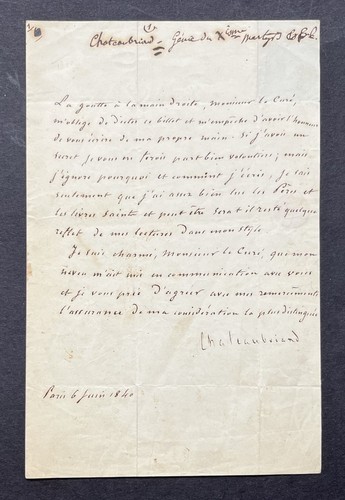 (1)
Chateaubriand = Génie du Xisme martyrs &c &c.
La goutte à la main droite, monsieur le Curé,
m'oblige de dicter ce billet et m'empêche d'avoir l'honneur
de vous écrire de ma propre main. Si j'avois un
secret je vous en ferois part bien volontiers; mais
j'ignore pourquoi et comment j'écris, je sais
seulement que j'ai assez bien lu les Pères et
les livres Saints et peut être sera t il resté quelque
reflet de mes lectures dans mon style.
Je suis charmé, Monsieur le Curé, que mon
neveu m'ait mis en communication avec vous
et je vous prie d'agréer avec mes remerciments
l'assurance de ma considération la plus distinguée
Chateaubriand
Paris 6 Juin 1840